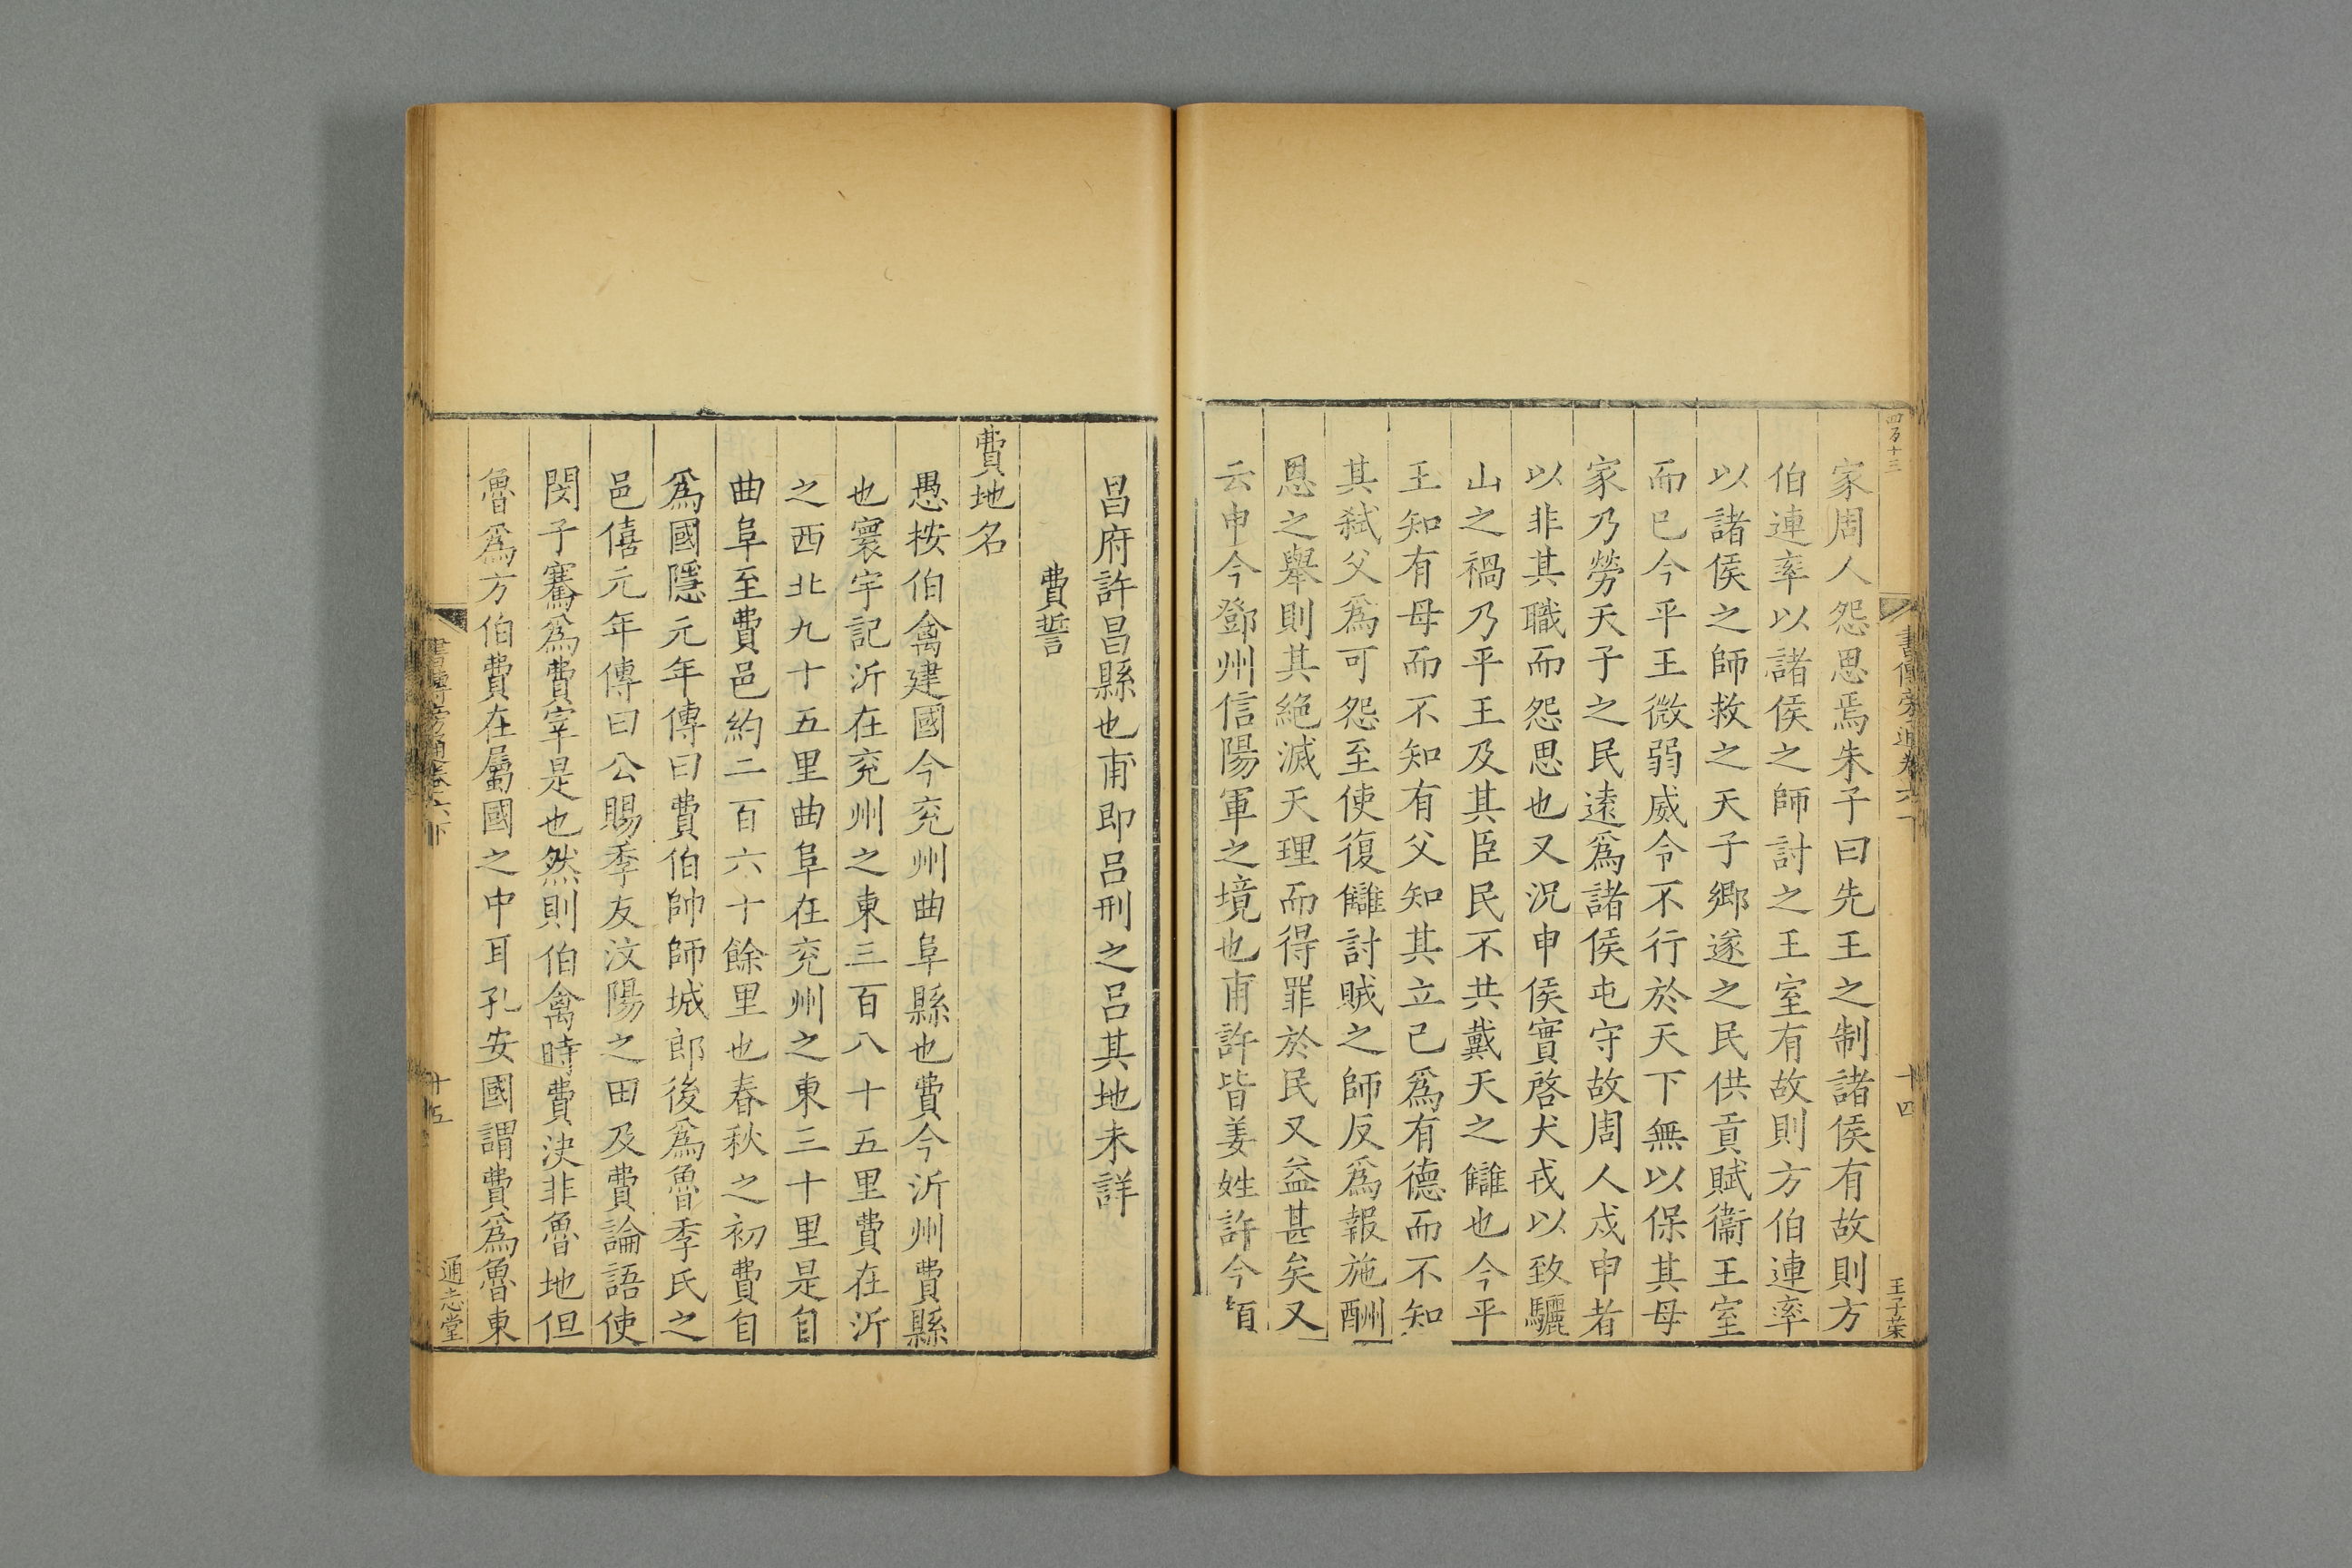 四百十三
書傳旁通卷六下
十四
王子榮
家周人怨思焉朱子曰先王之制諸侯有故則方
伯連率以諸侯之師討之王室有故則方伯連率
以諸侯之師救之天子鄉遂之民供貢賦衞王室
而已今平王微弱威令不行於天下無以保其母
家乃勞天子之民遠爲諸侯屯守故周人戍申者
以非其職而怨思也又況申侯實啓犬戎以致驪
山之禍乃平王及其臣民不共戴天之讎也今平
王知有母而不知有父知其立己爲有德而不知
其弑父爲可怨至使復讎討賊之師反爲報施酬
恩之舉則其絶滅天理而得罪於民又益甚矣又
云申今鄧州信陽軍之境也甫許皆姜姓許今頴
昌府許昌縣也甫即呂刑之呂其地未詳
費誓
費地名
愚按伯禽建國今兖州曲阜縣也費今沂州費縣
也寰宇記沂在兖州之東三百八十五里費在沂
之西北九十五里曲阜在兖州之東三十里是自
曲阜至費邑約二百六十餘里也春秋之初費自
爲國隱元年傳曰費伯帥師城郎後爲魯季氏之
邑僖元年傳曰公賜季友汶陽之田及費論語使
閔子騫爲費宰是也然則伯禽時費決非魯地但
魯爲方伯費在屬國之中耳孔安國謂費爲魯東
書傳旁通卷六下
十五
通志堂